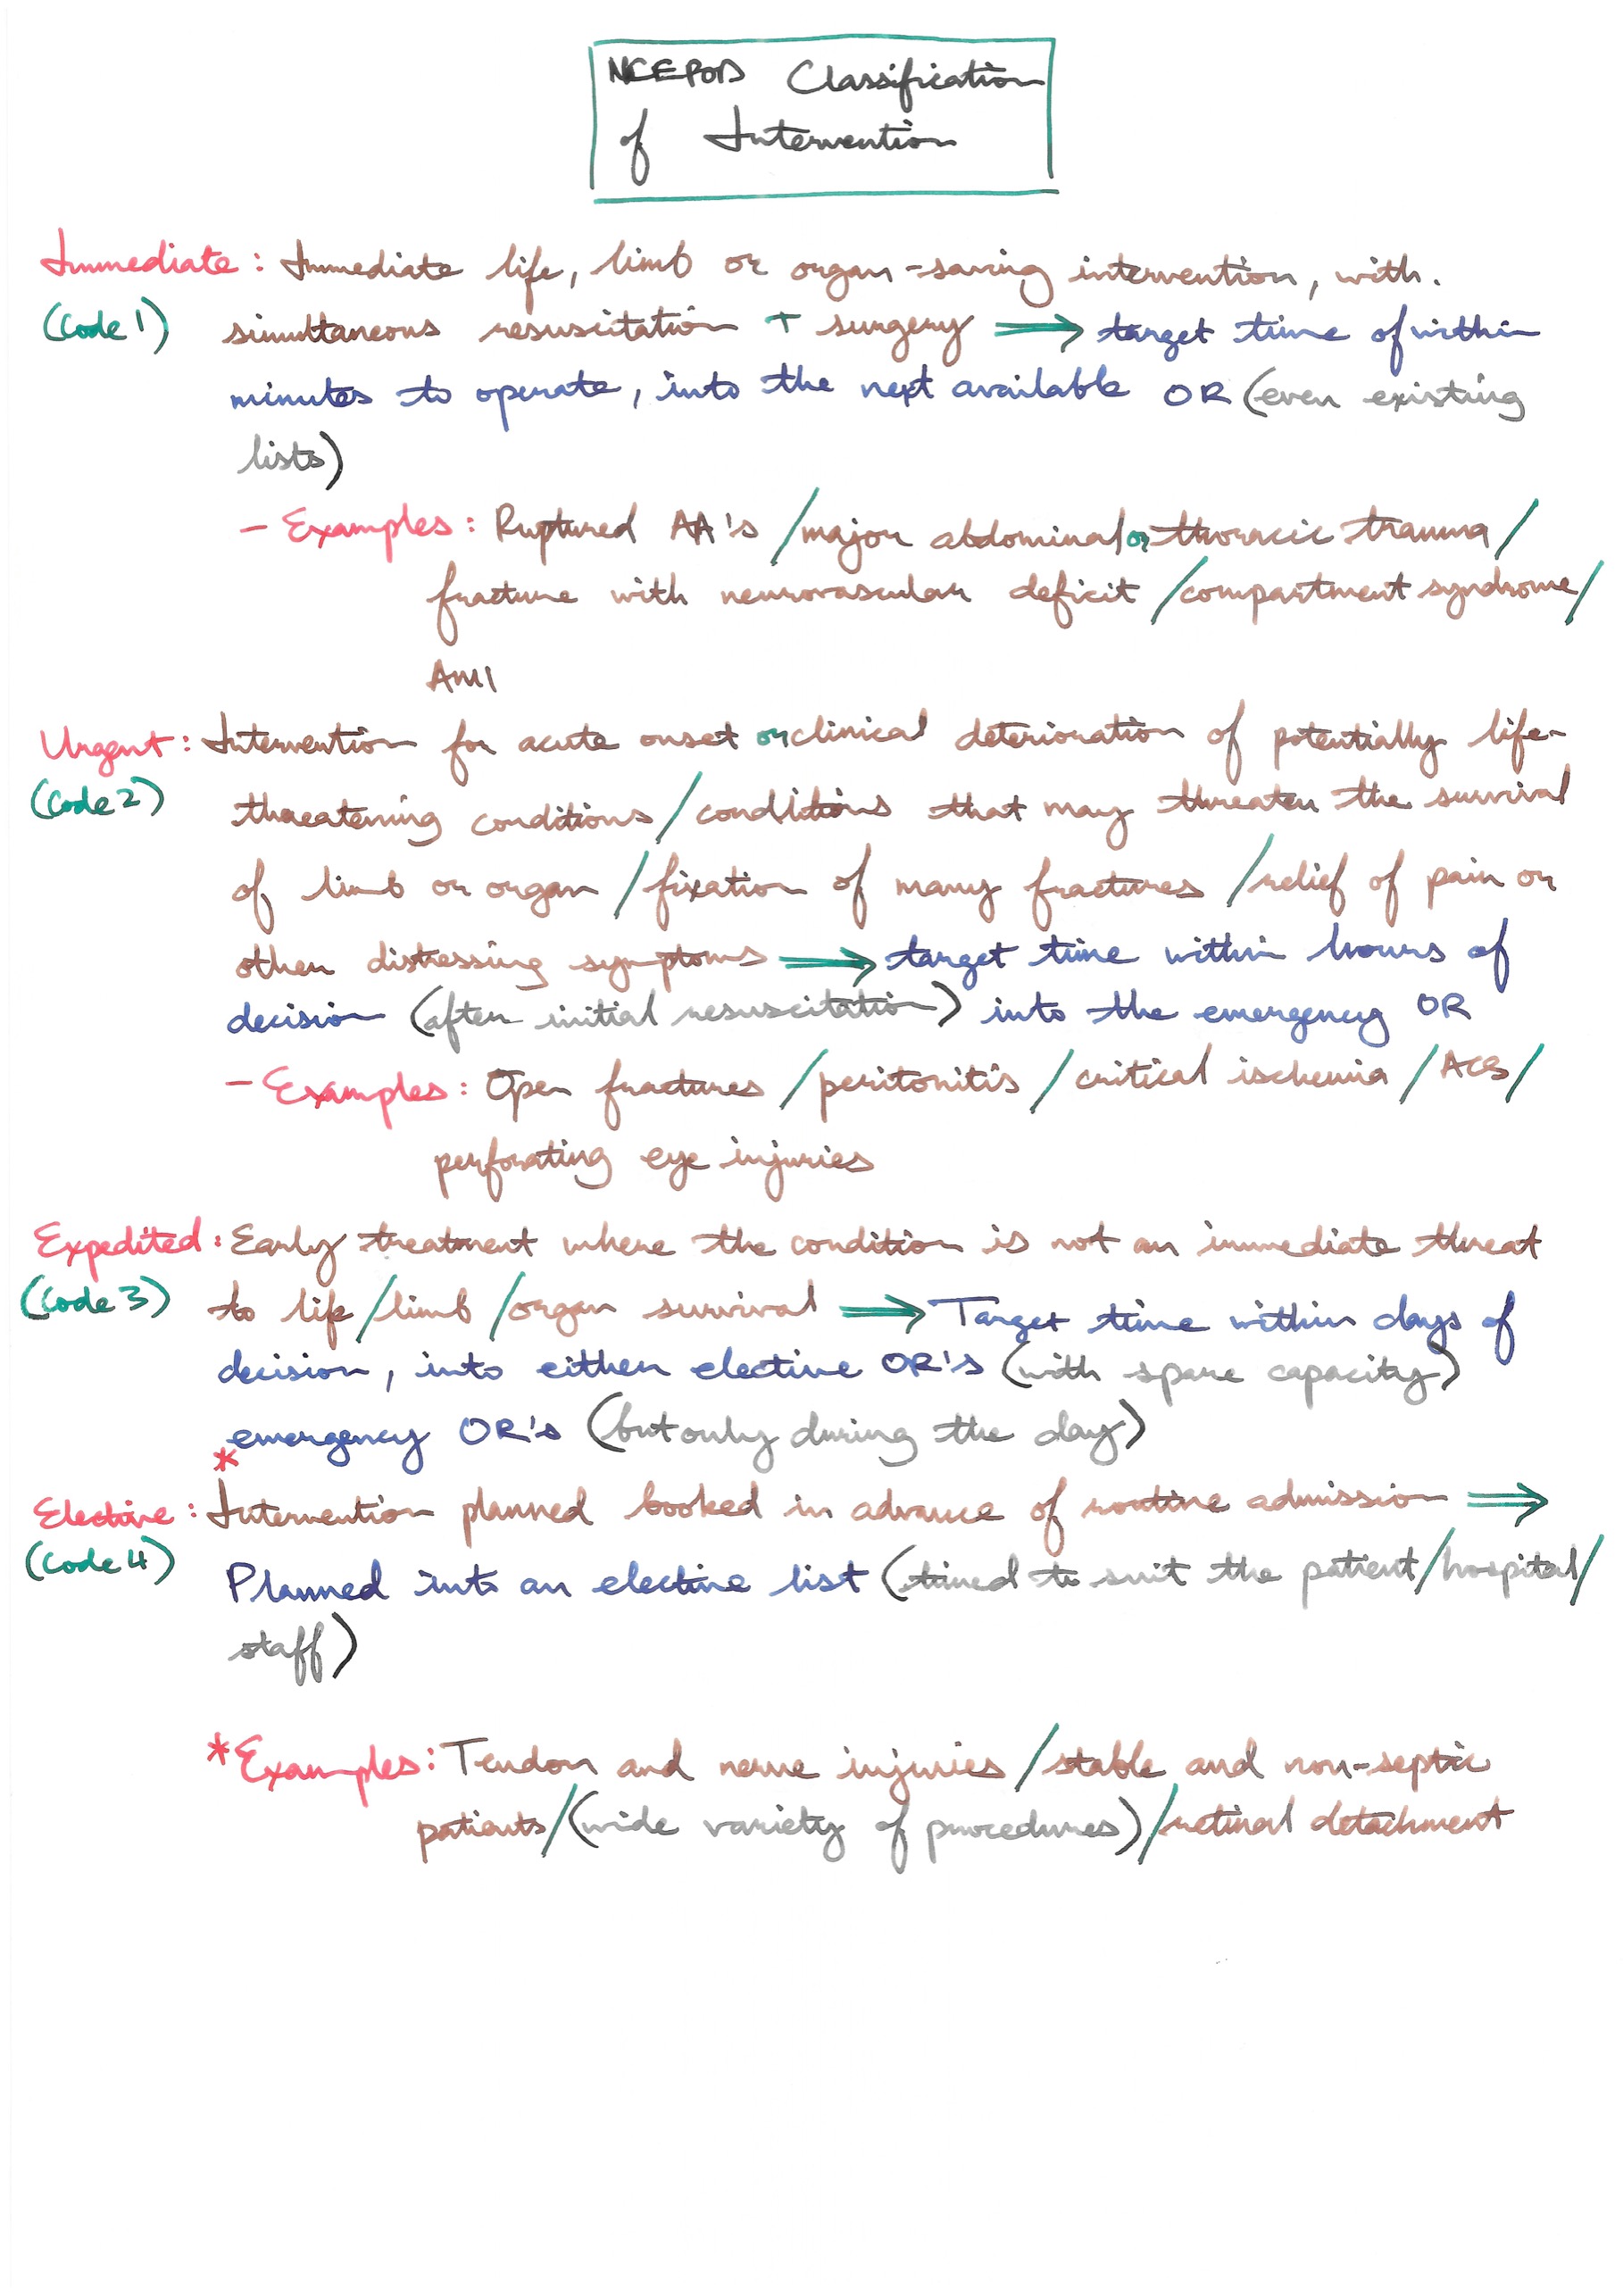 NCEPOD Classification
of Intervention
Immediate: Immediate life, limb or organ-saving intervention, with.
(Code 1) simultaneous resuscitation + surgery ⟹ target time of within
minutes to operate, into the next available OR (even existing
lists)
- Examples: Ruptured AA's / major abdominal or thoracic trauma /
fracture with neurovascular deficit / compartment syndrome /
AMI
Urgent: Intervention for acute onset or clinical deterioration of potentially life-
(Code 2) threatening conditions / conditions that may threaten the survival
of limb or organ / fixation of many fractures / relief of pain or
other distressing symptoms ⟹ target time within hours of
decision (after initial resuscitation) into the emergency OR
- Examples: Open fractures / peritonitis / critical ischemia / ACS /
perforating eye injuries
Expedited: Early treatment where the condition is not an immediate threat
(Code 3) to life / limb / organ survival ⟹ Target time within days of
decision, into either elective OR's (with spare capacity)
emergency OR's (but only during the day)
*
Elective: Intervention planned booked in advance of routine admission ⟹
(Code 4) Planned into an elective list (timed to suit the patient / hospital /
staff)
*Examples: Tendon and nerve injuries / stable and non-septic
patients / (wide variety of procedures) / retinal detachment